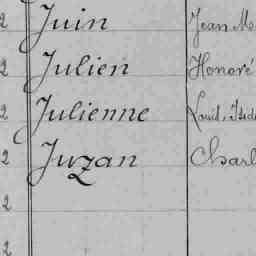 2 Juin Jean M
2 Julien Honoré
2 Julienne Louis, Isid
2 Juzan Charl
2
2